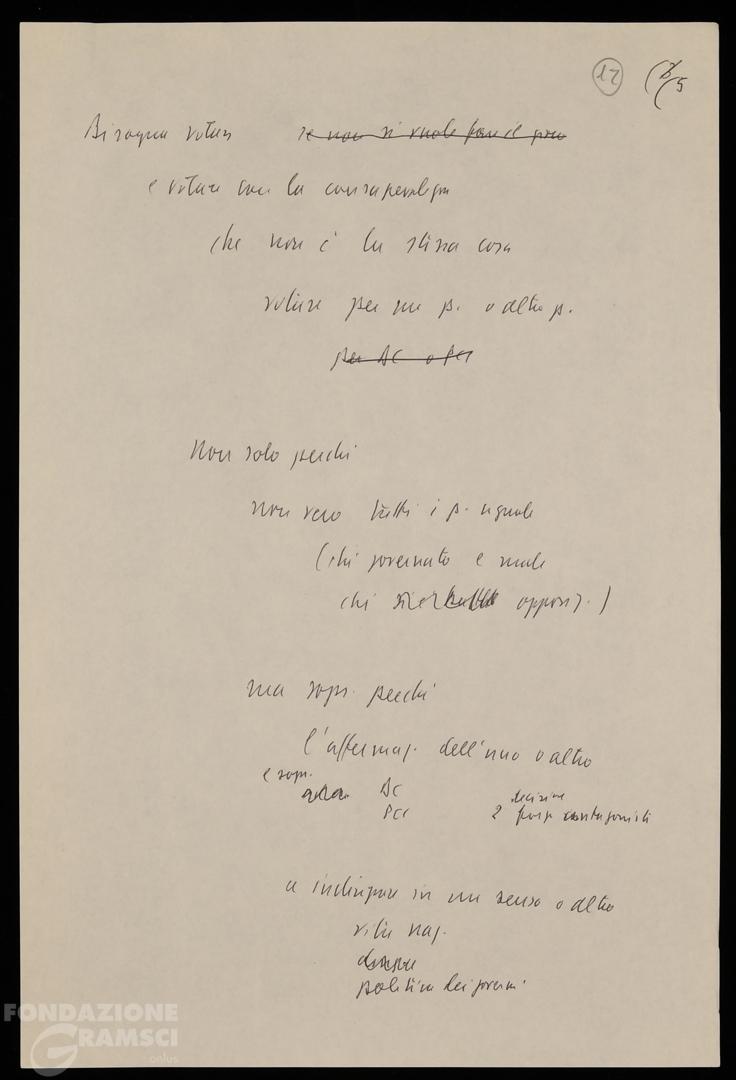 12 (3/5
Bisogna votare se non si vuole fare il gioco
e votare con la consapevolezza
che non è la stessa cosa
votare per un p. o altro p.
per DC o PCI
Non solo perché
non vero tutti i p. uguale
(chi governato e male
chi opposiz.)
ma sopr. perché
l'affermaz. dell'uno o altro
e sopr.
DC decisive
PCI 2 forze antagoniste
a indirizzare in un senso o altro
vita naz.
politica dei governi
FONDAZIONE
GRAMSCI
onlus